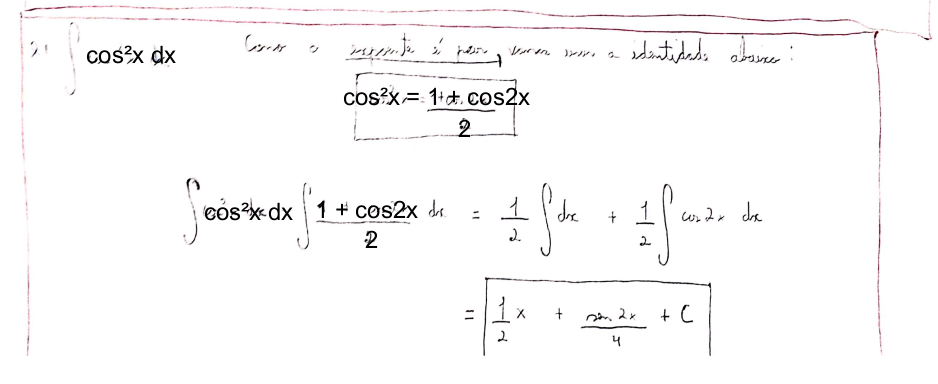 ∫ cos²x dx Como o expoente é par, vamos usar a identidade abaixo:
cos²x = 1 + cos2x / 2
∫ cos²x dx ∫ 1 + cos2x / 2 dx = 1/2 ∫ dx + 1/2 ∫ cos 2x dx
= 1/2 x + sen 2x / 4 + C